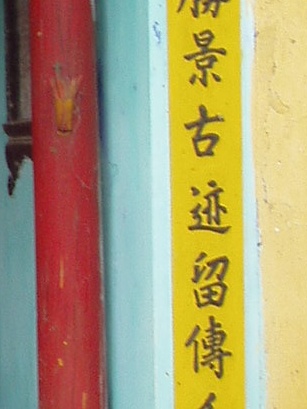 勝景古迹留傳